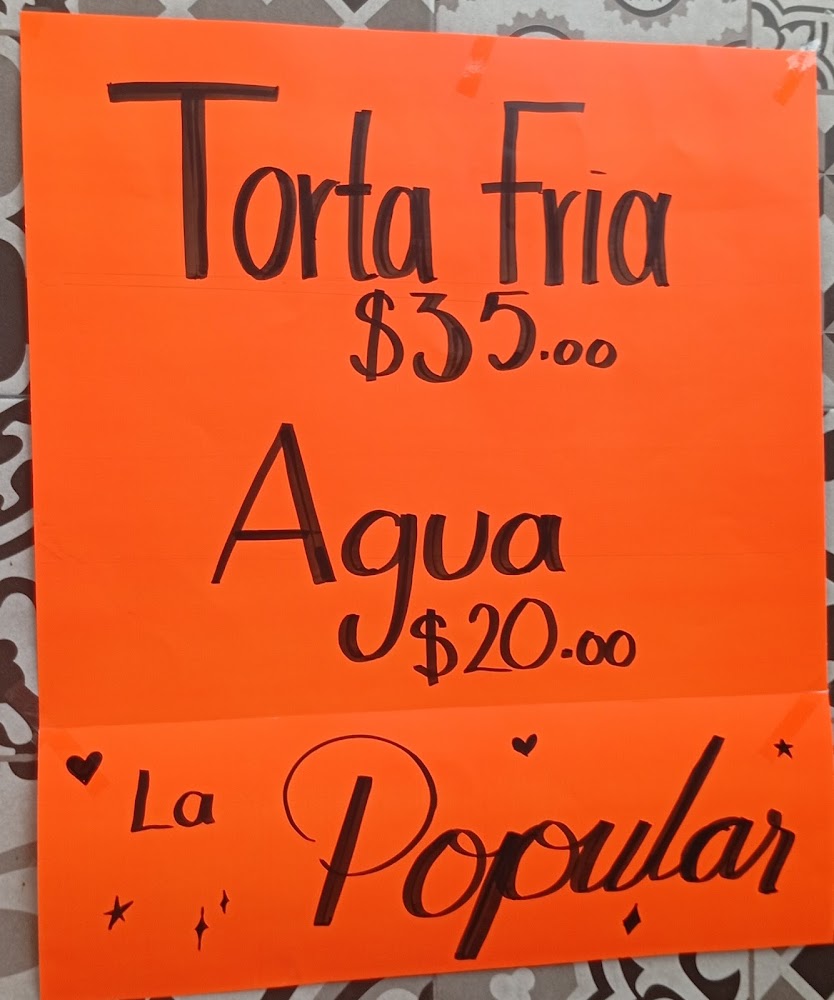 Torta Fria
$35.00
Agua
$20.00
La Popular